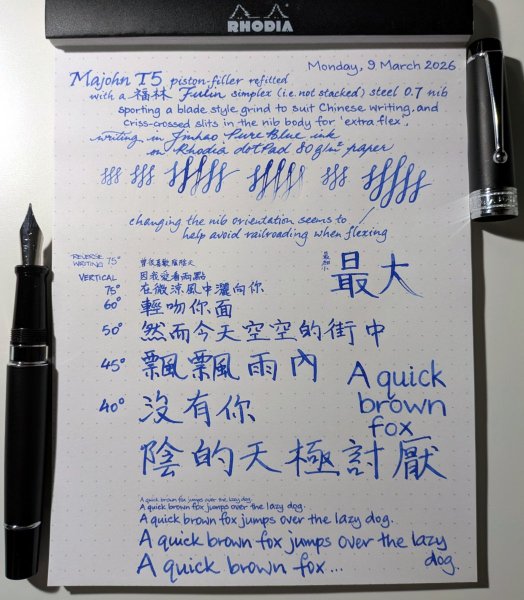 RHODIA
Monday, 9 March 2026
Majohn T5 piston-filler refitted
with a 福林 Fulin simplex (i.e. not stacked) steel 0.7 nib
sporting a blade style grind to suit Chinese writing, and
criss-crossed slits in the nib body for 'extra flex'.
writing in Jinhao Pure Blue ink
on Rhodia dotPad 80g/m² paper
changing the nib orientation seems to
help avoid railroading when flexing
REVERSE WRITING 75° 曾很喜歡陰陰天
最細小
最大
VERTICAL 因我愛看雨點
75° 在微涼風中灑向你
60° 輕吻你面
50° 然而今天空空的街中
45° 飄飄雨內
40° 沒有你
A quick
brown
fox
陰的天極討厭
A quick brown fox jumps over the lazy dog.
A quick brown fox jumps over the lazy dog.
A quick brown fox jumps over the lazy dog.
A quick brown fox jumps over the lazy
dog.
A quick brown fox...